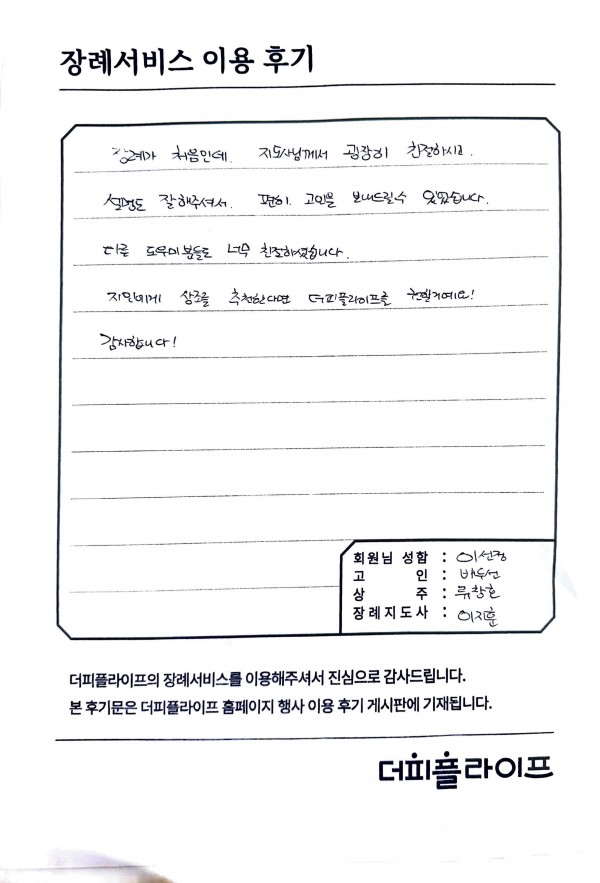 장례서비스 이용 후기
장례가 처음인데. 지도사님께서 굉장히 친절하시고.
설명도 잘해주셔서. 편히 고인을 보내드릴수 있었습니다.
다른 도우미분들도 너무 친절하셨습니다.
지인에게 상조를 추천한다면 더피플라이프를 권할거예요!
감사합니다!
회원님 성함 : 이선정
고 인 : 박두선
상 주 : 류창훈
장례지도사 : 이지훈
더피플라이프의 장례서비스를 이용해주셔서 진심으로 감사드립니다.
본 후기문은 더피플라이프 홈페이지 행사 이용 후기 게시판에 기재됩니다.
더피플라이프